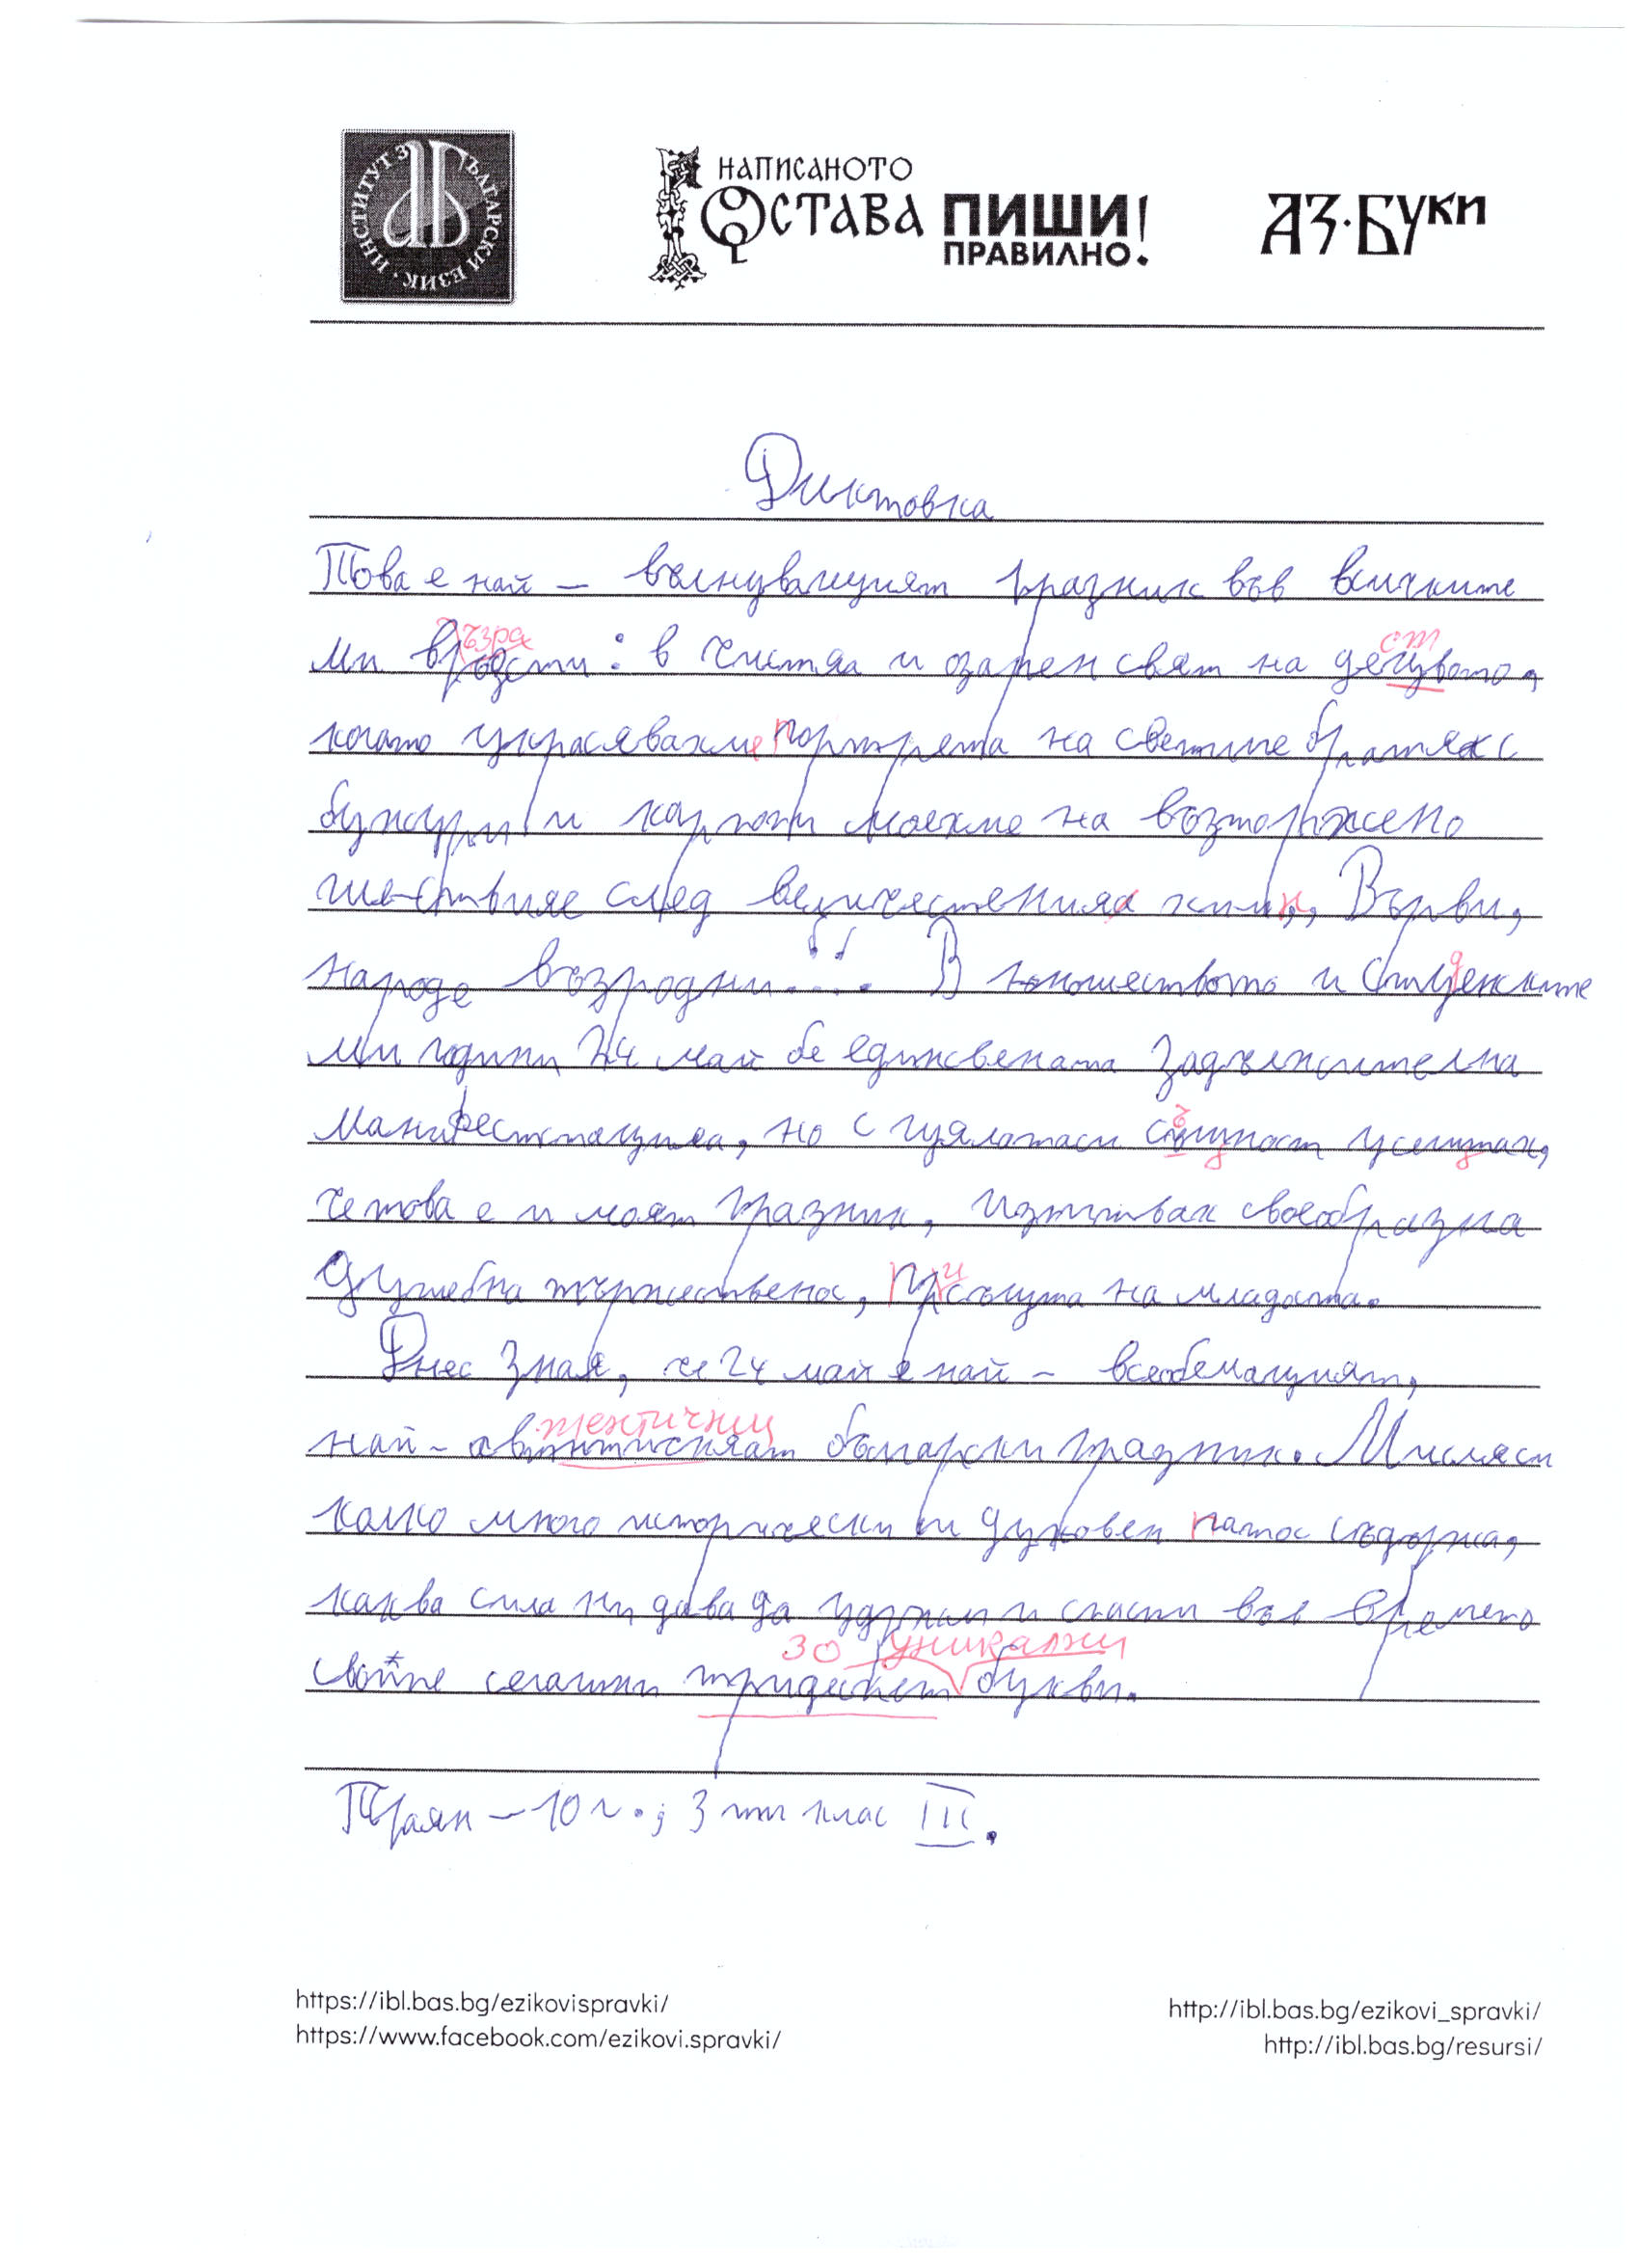 ИНСТИТУТ ЗА БЪЛГАРСКИ ЕЗИК
НАПИСАНОТО
ОСТАВА ПИШИ
ПРАВИЛНО!
АЗ·БУКИ
Диктовка
Това е най – вълнуващият празник във всичките
ъзра ст
ми : в чистия и озарен свят на
когато украсявахме портрета на светите братя с
божури и на възторжено
шествие след величествения химн, Върви,
народе възродни... В юношеството и студенските
ми години 24 май бе единсвената задължителна
но с цялата си същност усещах,
че това е и моят празник, изпитвах своеобразна
на младостта.
Днес зная, че 24 май е най – всеобемащият,
тентични
най – български празник. Мисля си
колко много исторически и духовен патос съдържа,
каква сила ни дава да удържим и спасим във времето
30 уникални
своите сегашни букви.
Траян – 10 г.; 3 ти клас III.
https://ibl.bas.bg/ezikovispravki/
https://www.facebook.com/ezikovi.spravki/
http://ibl.bas.bg/ezikovi_spravki/
http://ibl.bas.bg/resursi/